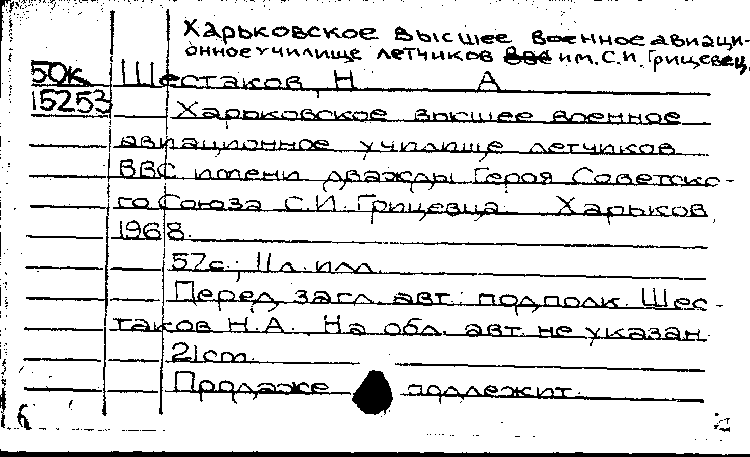 Харьковское высшее военное авиаци-
онное училище летчиков ВВС им. С.И. Грицевец
50к Шестаков, Н А
15253 Харьковское высшее военное
авиационное училище летчиков
ВВС имени дважды Героя Советско-
го Союза С.И. Грицевца. Харьков,
1968.
57с.; 11л. илл.
Перед загл. авт.: подполк. Шес-
таков Н.А. На обл. авт. не указан
21cm.
Продаже подлежит.
6